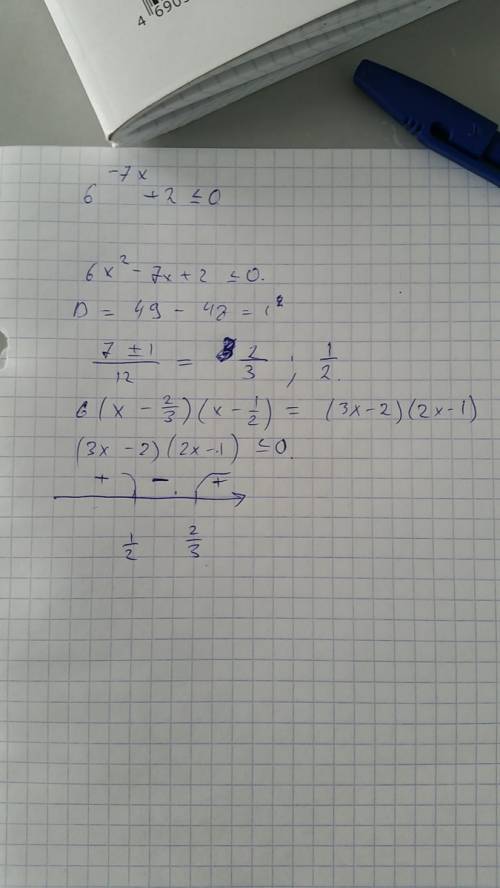 4 690
6^{-7x} + 2 ≤ 0
6x² - 7x + 2 ≤ 0.
D = 49 - 48 = 1²
\frac{7 ± 1}{12} = \frac{2}{3} ; \frac{1}{2}.
6(x - \frac{2}{3})(x - \frac{1}{2}) = (3x-2)(2x-1)
(3x-2)(2x-1) ≤ 0.
+ - +
\frac{1}{2} \frac{2}{3}